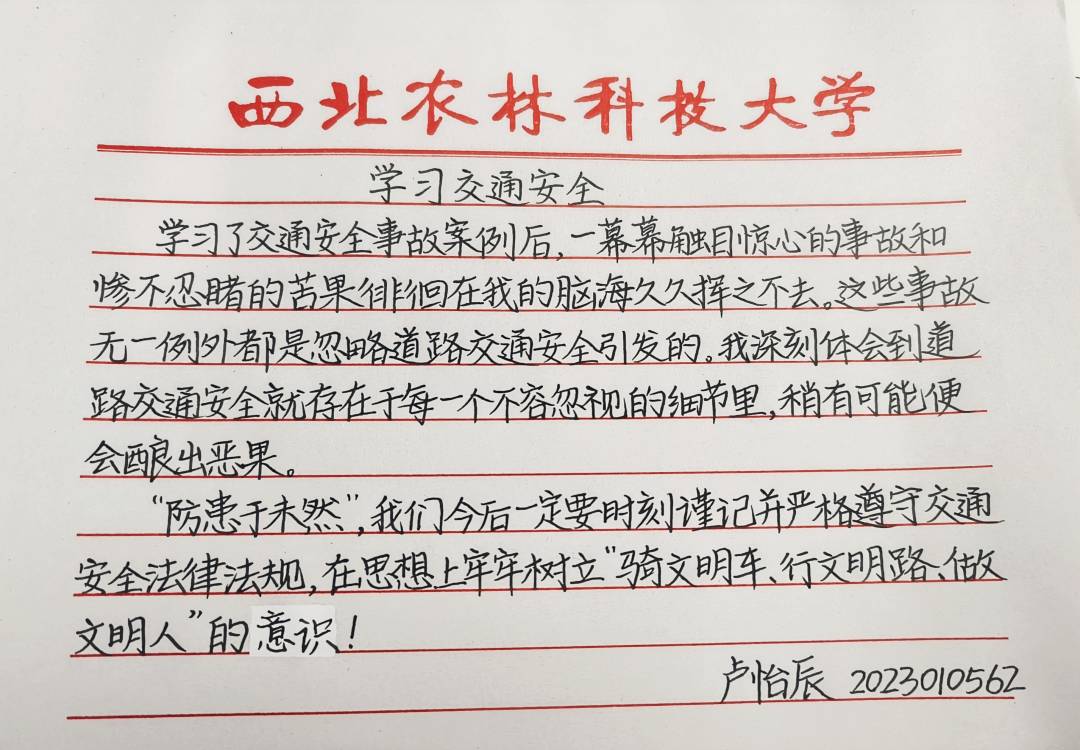 西北农林科技大学
学习交通安全
学习了交通安全事故案例后,一幕幕触目惊心的事故和
惨不忍睹的苦果徘徊在我的脑海久久挥之不去。这些事故
无一例外都是忽略道路交通安全引发的。我深刻体会到道
路交通安全就存在于每一个不容忽视的细节里,稍有可能便
会酿出恶果。
“防患于未然”,我们今后一定要时刻谨记并严格遵守交通
安全法律法规,在思想上牢牢树立“骑文明车、行文明路、做
文明人”的意识!
卢怡辰 2023010562